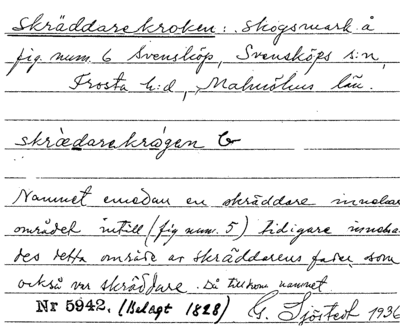 Skräddarekroken: skogsmark å
fig. num. 6 Svensköp, Svensköps s:n,
Frosta h:d, Malmöhus län.
skrædarekrågen
Namnet emedan en skräddare inneha
området intill (fig num. 5) tidigare inneha
des detta område av skräddarens fader som
också var skräddare. Då tillkom namnet.
Nr 5942. (Belagt 1828) G. Sjöstedt 1936